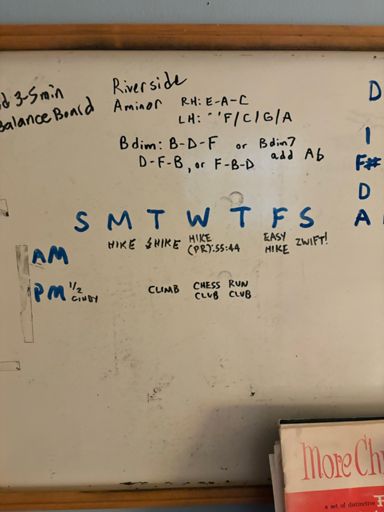 3-5 min
Balance Board
Riverside
Aminor RH: E-A-C
LH: " F/C/G/A
Bdim: B-D-F or Bdim7
D-F-B, or F-B-D add Ab
D
I
F#
D
A
S M T W T F S
AM HIKE HIKE HIKE (PR): 55:44 EASY HIKE ZWIFT!
PM 1/2 CINDY CLIMB CHESS CLUB RUN CLUB
More Ch
a set of distinctive